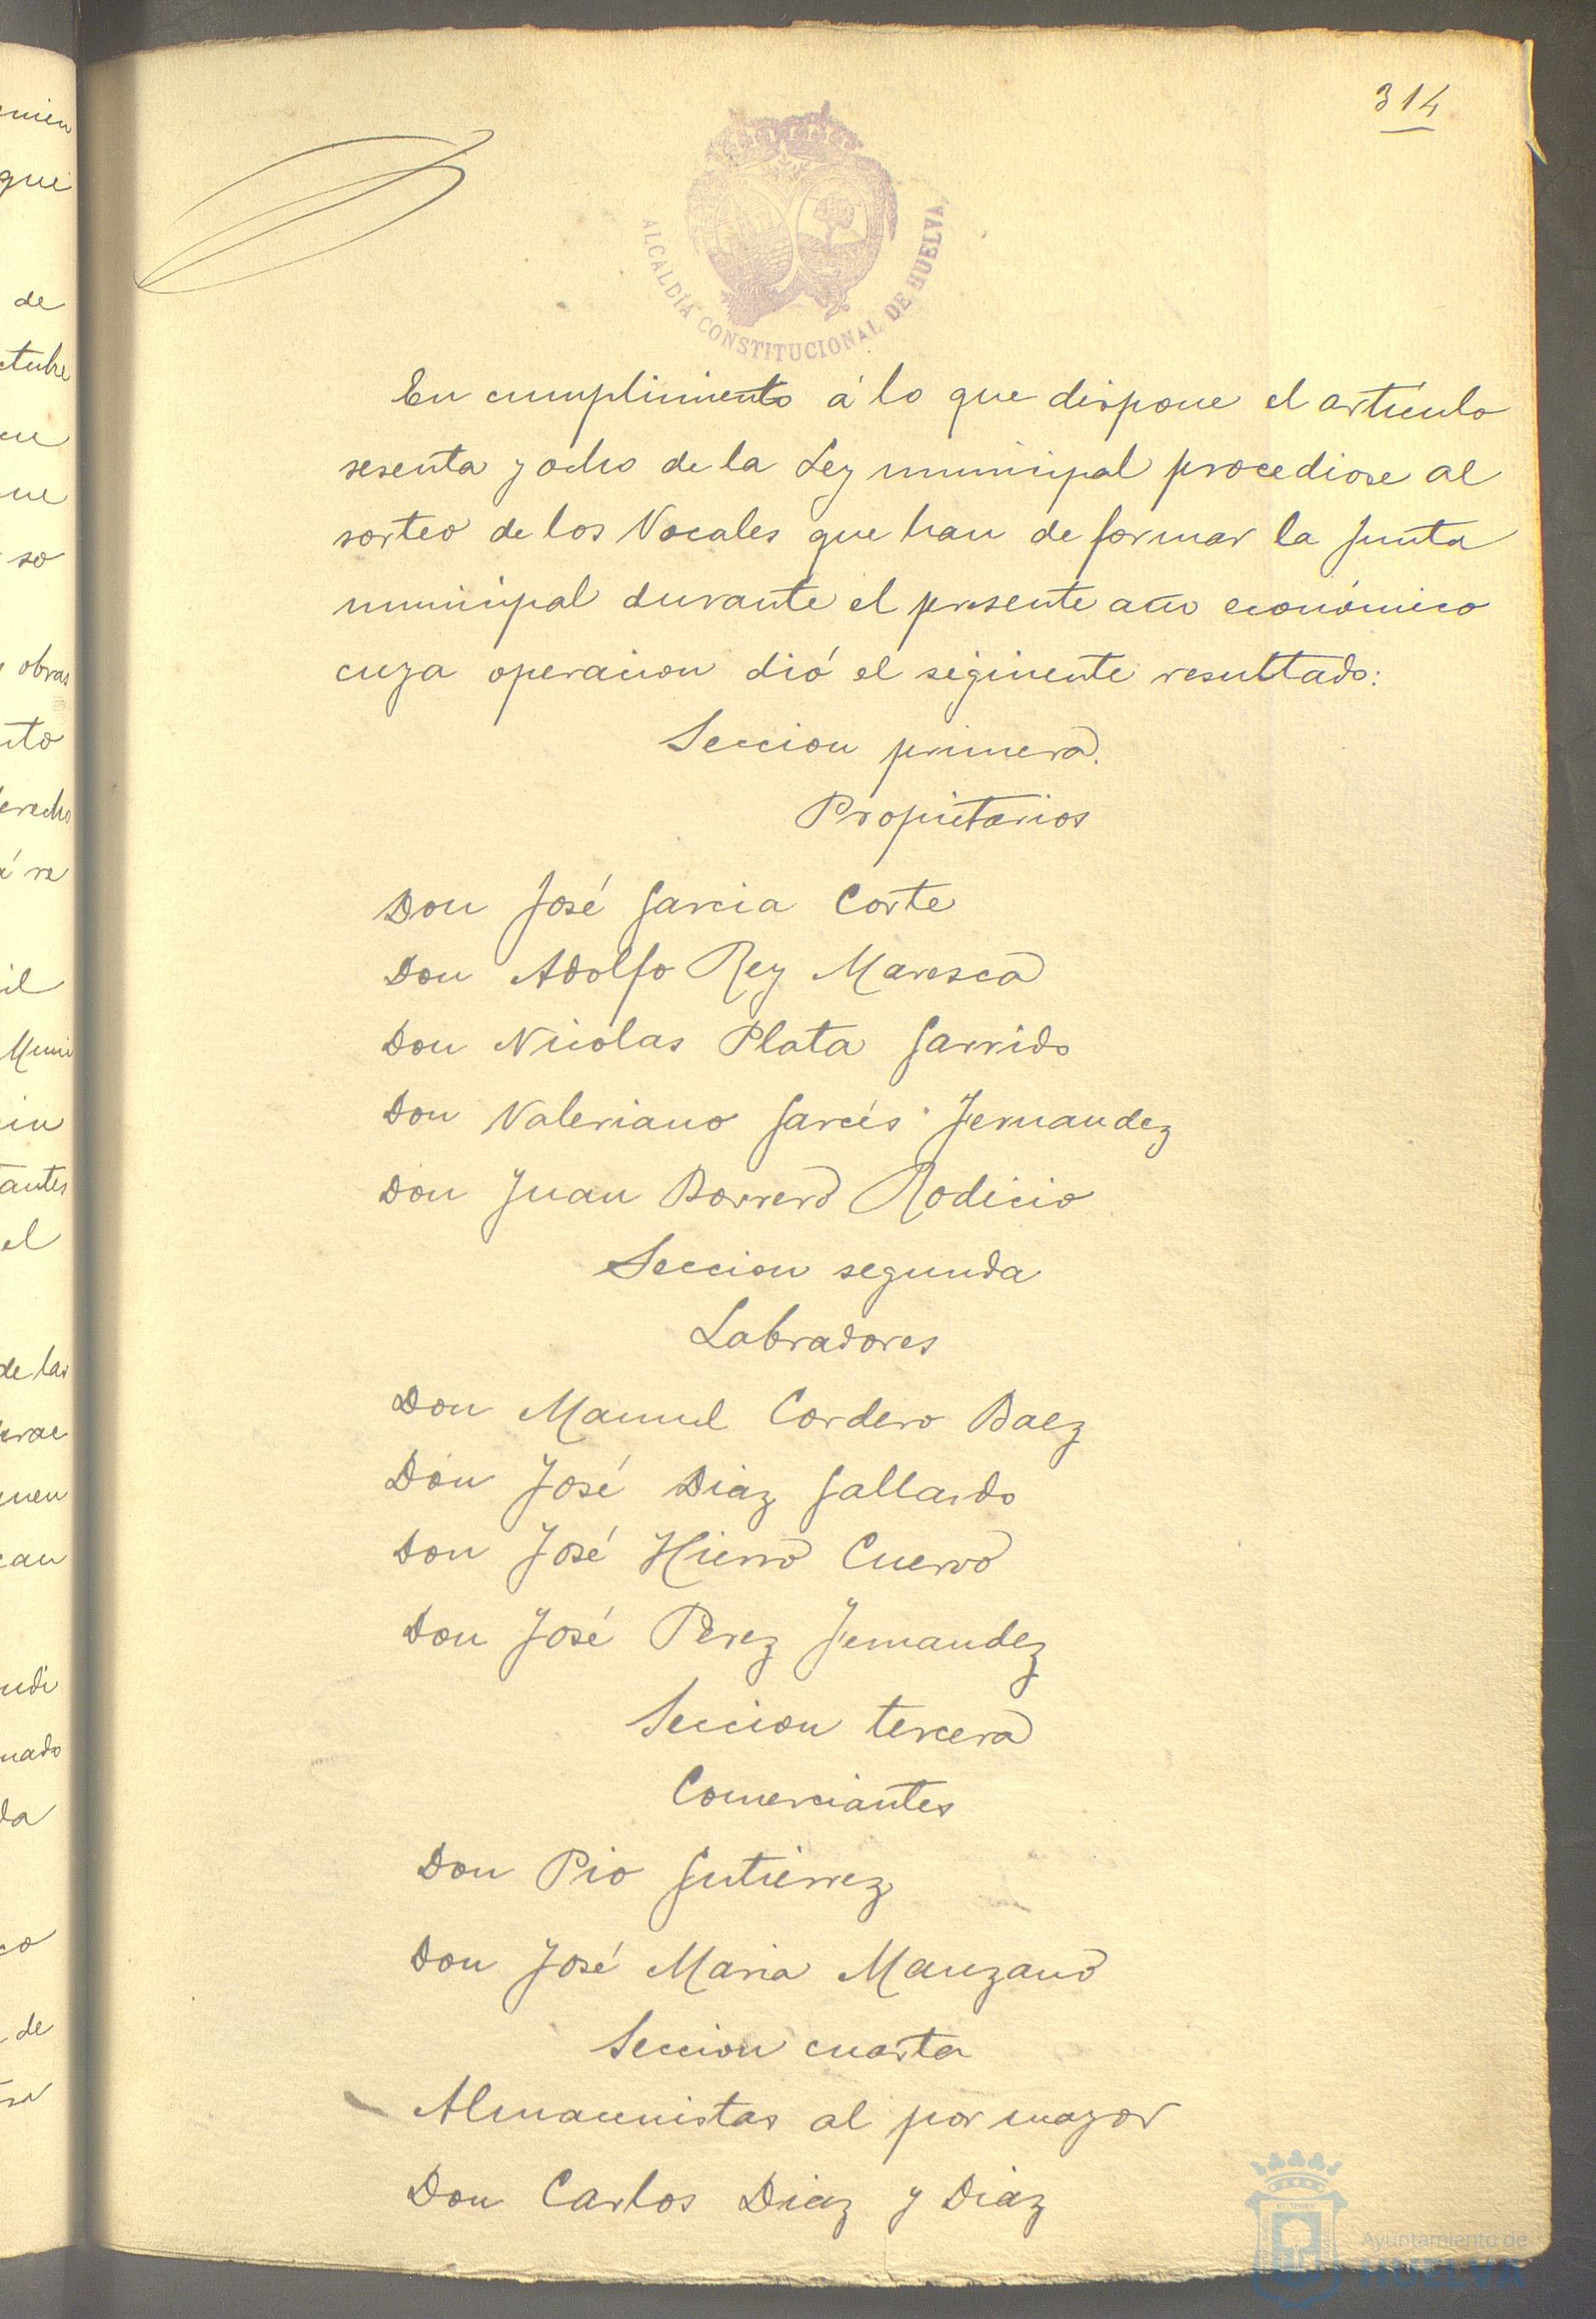 314
ALCALDÍA CONSTITUCIONAL DE HUELVA
En cumplimiento á lo que dispone el articulo
sesenta y ocho de la Ley municipal procediose al
sorteo de los Vocales que han de formar la Junta
municipal durante el presente año económico
cuya operacion dió el siguiente resultado:
Seccion primera.
Propietarios
Don José Garcia Corte
Don Adolfo Rey Maresca
Don Nicolas Plata Garrido
Don Valeriano Garcés Fernandez
Don Juan Borrero Rodicio
Seccion segunda
Labradores
Don Manuel Cordero Baez
Don José Diaz Gallardo
Don José Hierro Cuervo
Don José Perez Fernandez
Seccion tercera
Comerciantes
Don Pio Gutierrez
Don José Maria Manzano
Seccion cuarta
Almacenistas al por mayor
Don Carlos Diaz y Diaz
Ayuntamiento de
HUELVA